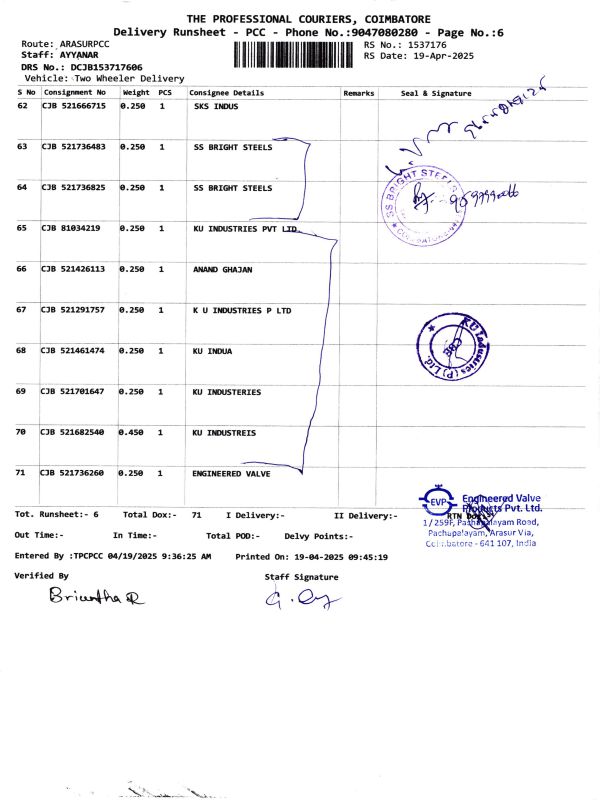 THE PROFESSIONAL COURIERS, COIMBATORE
Delivery Runsheet - PCC - Phone No.:9047080280 - Page No.:6
Route: ARASURPCC
Staff: AYYANAR
DRS No.: DCJB153717606
Vehicle: Two Wheeler Delivery
RS No.: 1537176
RS Date: 19-Apr-2025
S No Consignment No Weight PCS Consignee Details Remarks Seal & Signature
62 CJB 521666715 0.250 1 SKS INDUS
63 CJB 521736483 0.250 1 SS BRIGHT STEELS
64 CJB 521736825 0.250 1 SS BRIGHT STEELS
SS BRIGHT STEELS
65 CJB 81034219 0.250 1 KU INDUSTRIES PVT LTD.
66 CJB 521426113 0.250 1 ANAND GHAJAN
67 CJB 521291757 0.250 1 K U INDUSTRIES P LTD
68 CJB 521461474 0.250 1 KU INDUA
KU Industries (P) Ltd.
CBE
69 CJB 521701647 0.250 1 KU INDUSTERIES
70 CJB 521682540 0.450 1 KU INDUSTREIS
71 CJB 521736260 0.250 1 ENGINEERED VALVE
EVP
Engineered Valve
Products Pvt. Ltd.
1/259F, Pachapalayam Road,
Pachapalayam, Arasur Via,
Coimbatore - 641 107, India
Tot. Runsheet:- 6 Total Dox:- 71 I Delivery:- II Delivery:- RTN
Out Time:- In Time:- Total POD:- Delvy Points:-
Entered By :TPCPCC 04/19/2025 9:36:25 AM Printed On: 19-04-2025 09:45:19
Verified By Staff Signature